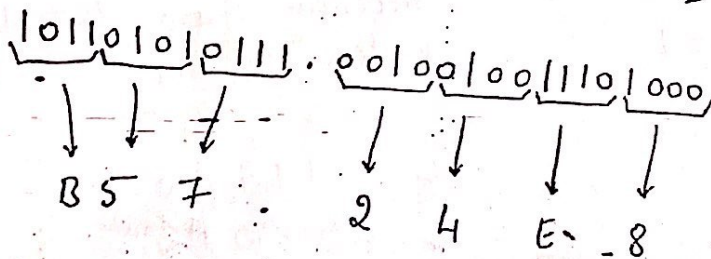 101101010111.0010010011101000
B 5 7 . 2 4 E 8